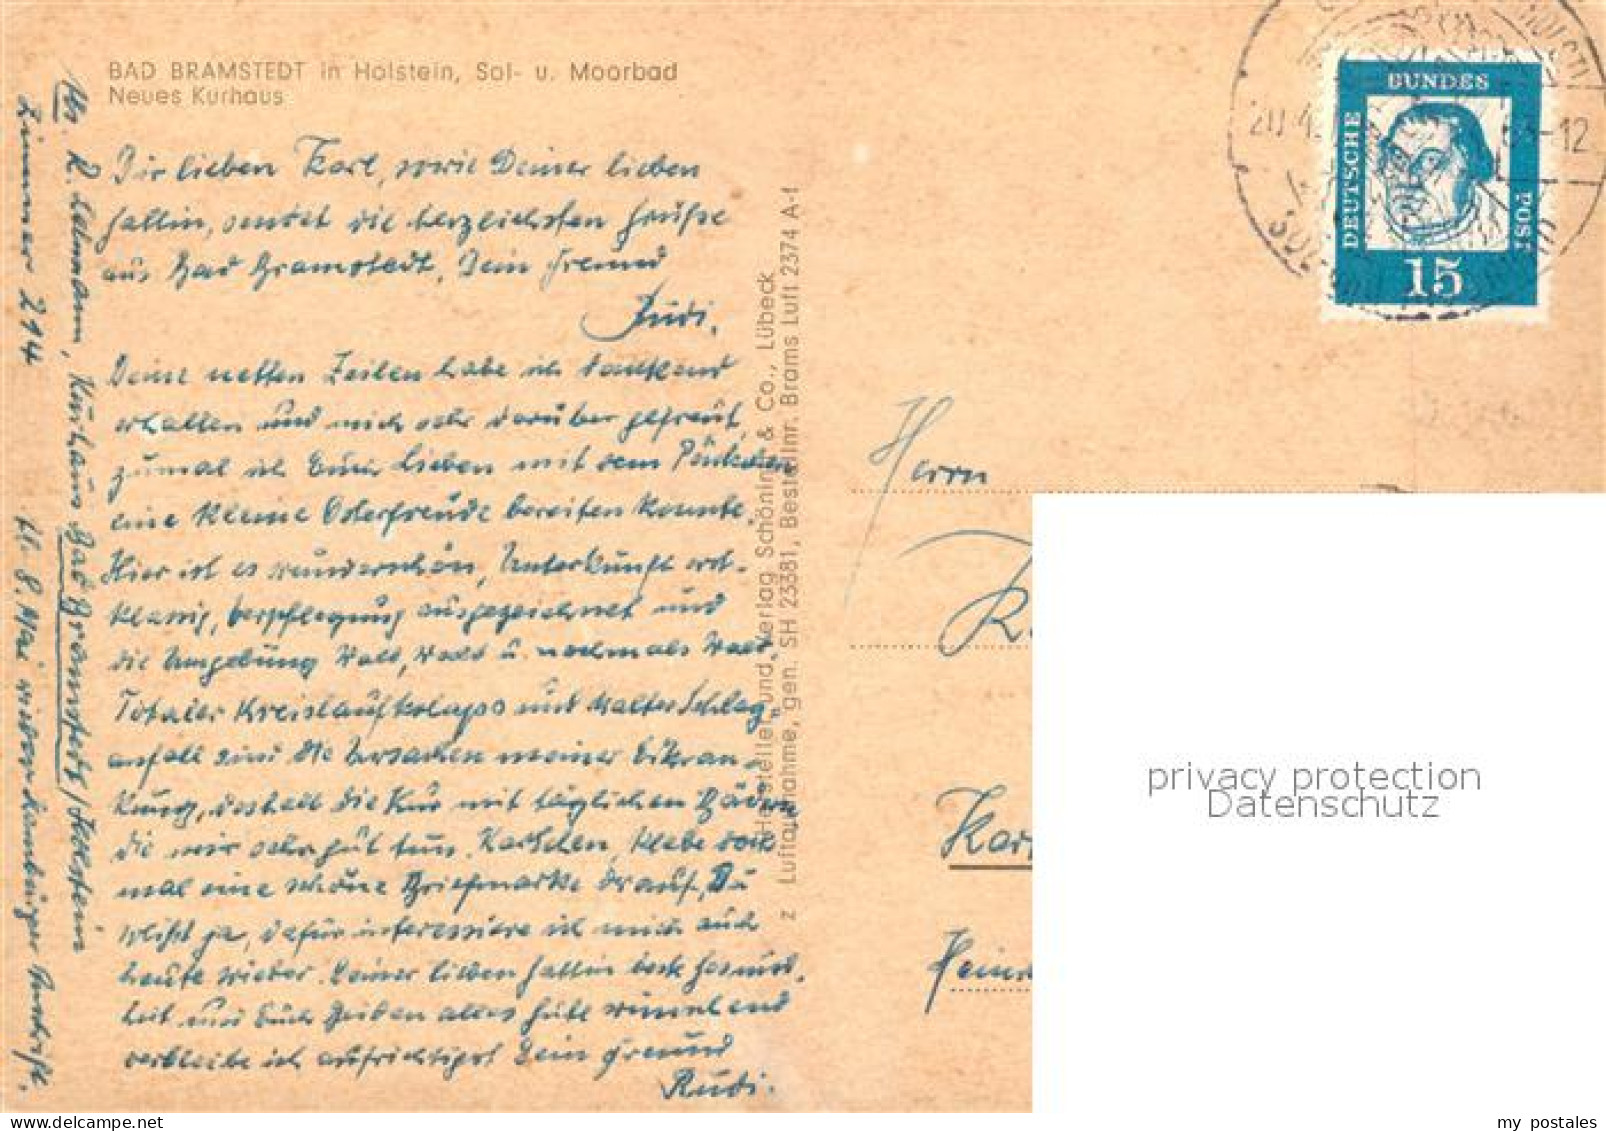 BAD BRAMSTEDT in Holstein, Sol- u. Moorbad
Neues Kurhaus
Dir lieben Karl, sowie Deiner lieben
Gattin, sendet die herzlichsten Grüße
aus Bad Bramstedt, Dein Freund
Rudi.
Deine netten Zeilen habe ich dankend
erhalten und mich sehr darüber gefreut,
zumal ich Euch Lieben mit dem Päckchen
eine kleine Osterfreude bereiten konnte.
Hier ist es wunderschön, Unterkunft erst-
klassig, Verpflegung ausgezeichnet und
die Umgebung Wald, Wald u. nochmals Wald.
Totaler Kreislaufkolaps und kalter Schlag-
anfall sind die Ursachen meiner Erkran-
kung, deshalb die Kur mit täglichen Bädern
die mir sehr gut tun. Karlchen, klebe doch
mal eine schöne Briefmarke drauf, Du
weißt ja, dafür interessiere ich mich auch
heute wieder. Deiner lieben Gattin beste Gesund-
heit und Euch Beiden alles Gute wünschend
verbleibe ich aufrichtigst Dein Freund
Rudi.
R. Lehmann, Kurhaus Bad Bramstedt/Holstein
Zimmer 214
8. Mai wieder Hamburger Anschrift.
Hersteller und Verlag Schöning & Co., Lübeck
z Luftaufnahme, gen. SH 23381, Bestellnr. Brams Luft 2374 A-1
DEUTSCHE
BUNDES
POST
15
20.4.
-12
Herrn
Kar
privacy protection
Datenschutz
my postales